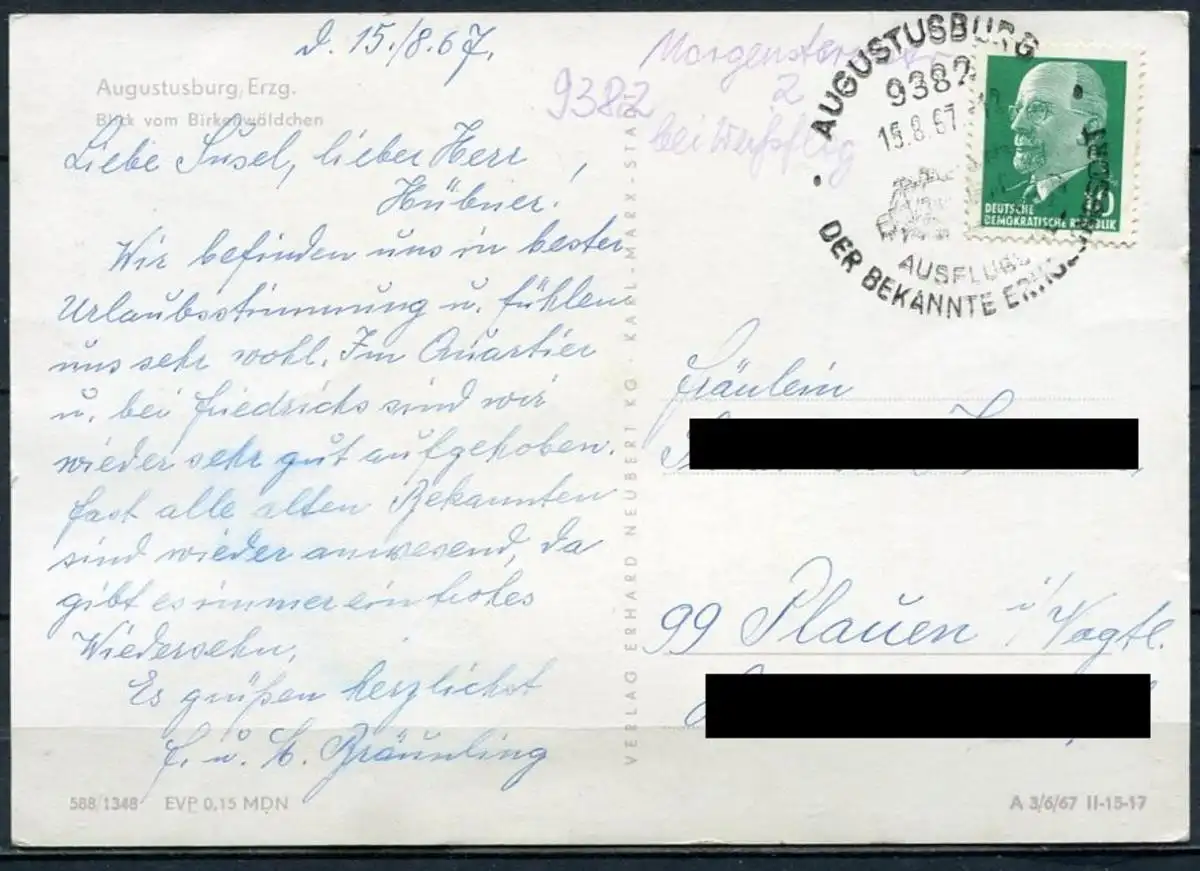 d. 15./8.67.
Augustusburg, Erzg.
Blick vom Birkenwäldchen
Liebe Susel, lieber Herr
Hübner!
Wir befinden uns in bester
Urlaubsstimmung u. fühlen
uns sehr wohl. Im Quartier
u. bei Friedrichs sind wir
wieder sehr gut aufgehoben.
Fast alle alten Bekannten
sind wieder anwesend, da
gibt es immer ein frohes
Wiedersehn.
Es grüßen herzlichst
F. u. E. Bräunling
588/1348 EVP 0,15 MDN
VERLAG ERHARD NEUBERT KG · KARL-MARX-STA
9382
2
bei
AUGUSTUSBURG
9382
15.8.67
AUSFLUGS
DER BEKANNTE
DEUTSCHE
DEMOKRATISCHE REPUBLIK
Fräulein
99 Plauen i/Vogtl.
A 3/6/67 II-15-17